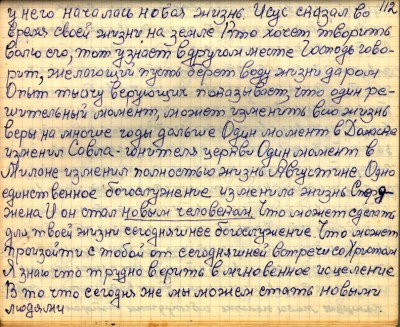 112
у него началась новая жизнь. Исус сказал во
время своей жизни на земле Кто хочет творить
волю его, тот узнает В другом месте Господь гово-
рит, желающий пусть берет воду жизни даром
Опыт тысяч верующих показывает, что один ре-
шительный момент, может изменить всю жизнь
веры на многие годы дальше Один момент в Дамаске
изменил Савла-гонителя церкви Один момент в
Милане изменил полностью жизнь Августине. Одно
единственное богослужение изменила жизнь
жена И он стал новым человеком. Что может сделать
для твоей жизни сегодняшнее богослужение Что может
произойти с тобой от сегодняшней встречи со Христом
Я знаю что трудно верить в мгновенное исцеление
В то что сегодня же мы можем стать новыми
людями